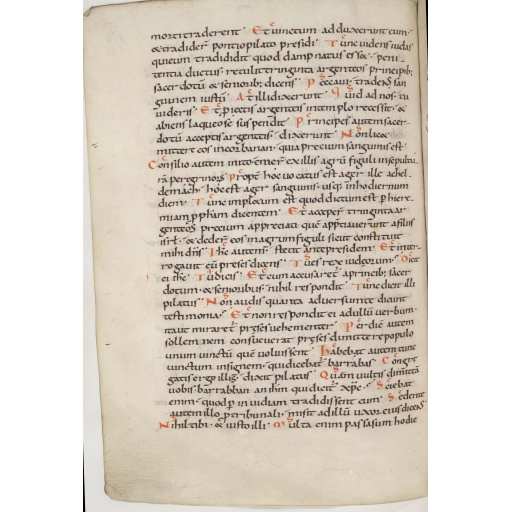 morti traderent · Et vinctum adduxerunt eum ·
& tradider̄ pontio pilato presidi · Tunc videns iudas
qui eum tradidit quod damnatus ess& · peni
tentia ductus · retulit triginta argenteos principib;
sacerdotū & seniorib; dicens · Peccavi · tradens san
guinem iustū · At illi dixerunt · Quid ad nos · tu
videris · Et proiectis argenteis in templo recessit · &
abiens laqueo se suspendit · Principes autem sacer
dotū acceptis argenteis · dixerunt · Non lic&
mittere eos in corbanan · quia precium sanguinis est ·
Consilio autem inito emer̄ ex illis agrū figuli in sepultu
rā peregrinorū · Propt̄ hoc vocatus est ager ille achel
demach · hoc est ager sanguinis · usq; in hodiernum
diem · Tunc impl&um est quod dictum est p hiere
miam pph&am dicentem · Et acceper̄ triginta ar
genteos precium appreciati quē appreciaver̄ a filiis
isrl · & deder̄ eos in agrum figuli sicut constituit
mihi dn̄s · Ihc autem st&it ante presidem · Et inter
rogavit eū preses dicens · Tu es rex iudeorum · Dicit
ei ihc · Tu dicis · Et cum accusar&̄ a princib; sacer
dotum · & seniorib; · nihil respondit · Tunc dicit illi
pilatus · Non audis quanta adversum te dicunt
testimonia · Et non respondit ei ad ullū verbum ·
ita ut mirar&̄ preses vehementer · Per diē autem
sollemnem consueverat preses dimittere populo
unum vinctū quē voluissent · Habebat autem tunc
vinctum insignem · qui dicebat̄ barrabas · Congre
gatis ergo illis · dixit pilatus · Quem vultis dimittā
vobis · barabban an ihm qui dicit̄ xpc · Sciebat
enim · quod p invidiam tradidissent eum · Sedente
autem illo p tribunali · misit ad illū uxor eius dicens
Nihil tibi · & iusto illi · Multa enim passa sum hodie